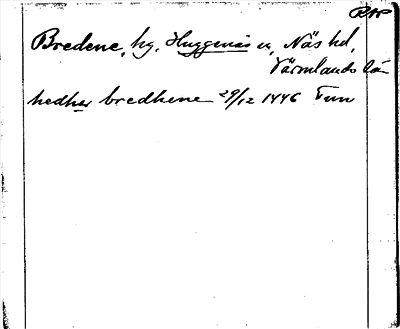 RAP
Bredene, hg, Huggenäs sn, Näs hd,
Värmlands län
hedher bredhene 29/12 1446